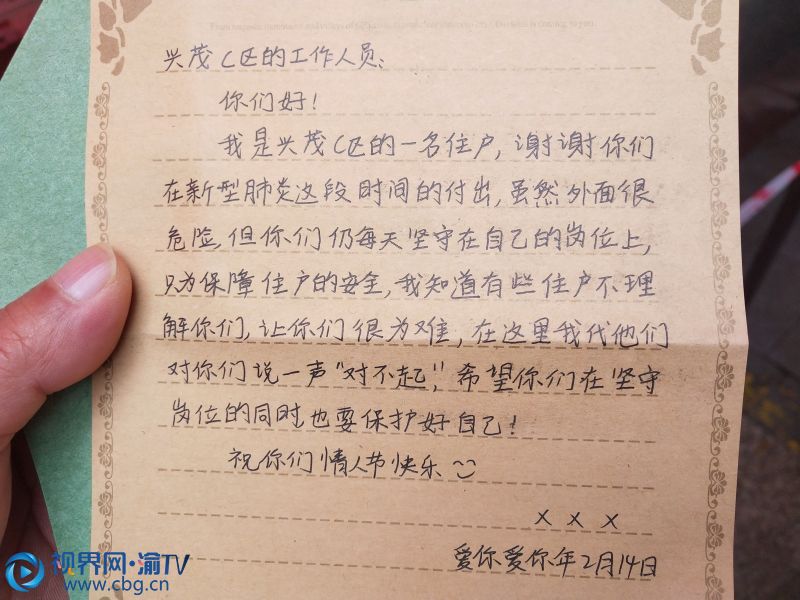 兴茂C区的工作人员:
你们好!
我是兴茂C区的一名住户,谢谢你们
在新型肺炎这段时间的付出,虽然外面很
危险,但你们仍每天坚守在自己的岗位上,
只为保障住户的安全,我知道有些住户不理
解你们,让你们很为难,在这里我代他们
对你们说一声“对不起”,希望你们在坚守
岗位的同时,也要保护好自己!
祝你们情人节快乐
x x x
爱你爱你年2月14日
视界网·渝TV
www.cbg.cn